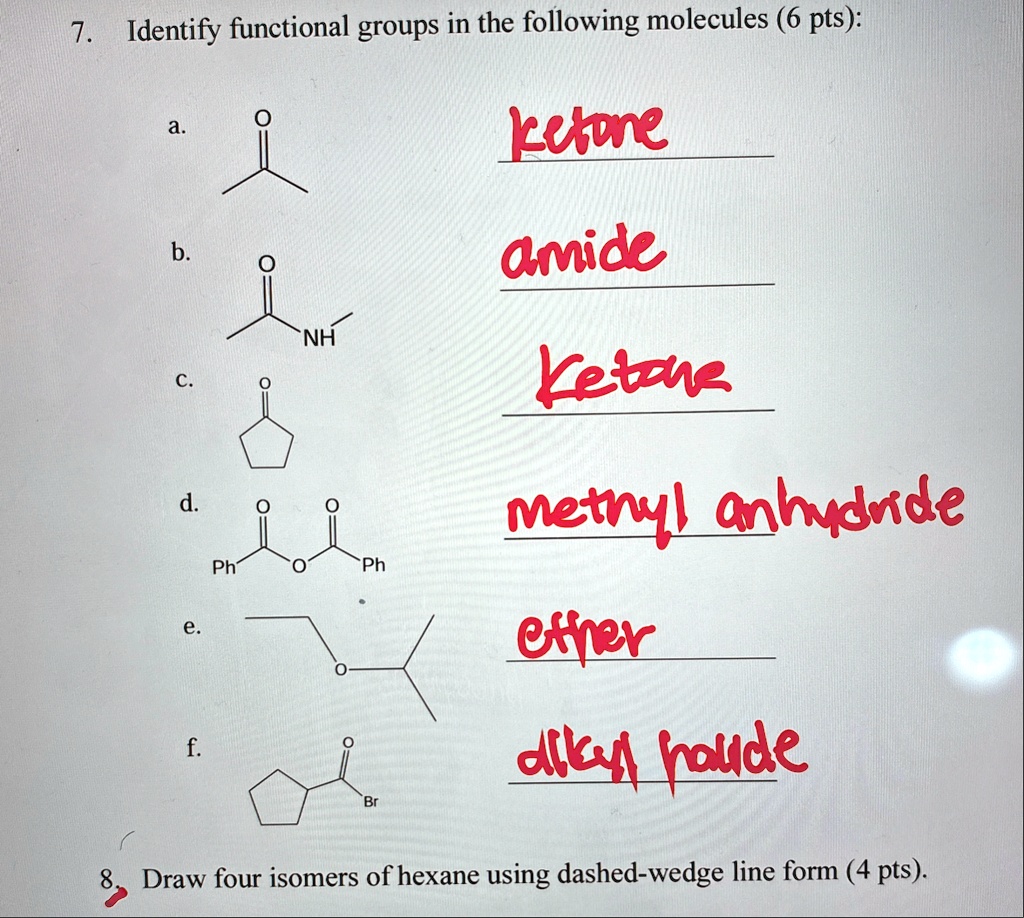 7. Identify functional groups in the following molecules (6 pts):
a. O ketone
b. O
NH amide
c. O ketone
d. O O
Ph O Ph methyl anhydride
e. O ether
f. O
Br alkyl halide
8. Draw four isomers of hexane using dashed-wedge line form (4 pts).